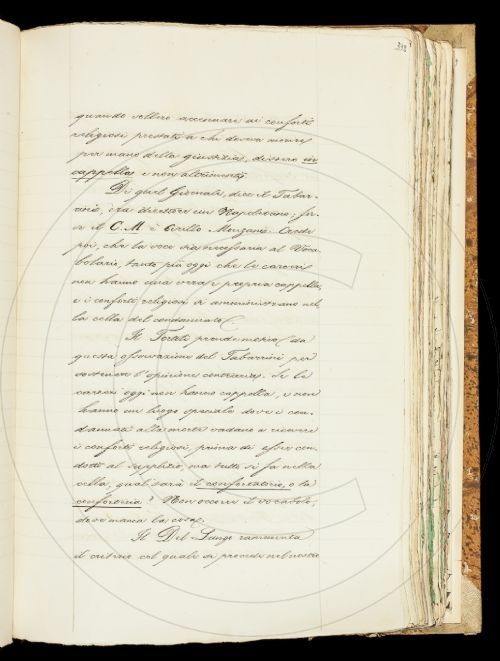 quando vollero accennare ai conforti
religiosi prestati a chi doveva morire
per mano della giustizia, dissero in
cappella e non altrimenti.
Di quel Giornale, dice il Tabar-
rini, era direttore un Napoletano, for-
se il C. M. è Cirillo Monzani. Crede
poi, che la voce sia necessaria al Voca-
bolario, tanto più oggi che le carceri
non hanno una vera e propria cappella,
e i conforti religiosi si amministrano nel-
la cella del condannato.
Il Tortoli prende motivo da
questa osservazione del Tabarrini per
sostenere l'opinione contraria. Se le
carceri oggi non hanno cappella, e non
hanno un luogo speciale dove i con-
dannati alla morte vadano a ricevere
i conforti religiosi, prima di esser con-
dotti al supplizio, ma tutto si fa nella
cella, qual sarà il confortatorio, o la
conforteria? Non occorre il vocabolo,
dove manca la cosa.
Il Del Lungo rammenta
il criterio col quale si procede nel nostro